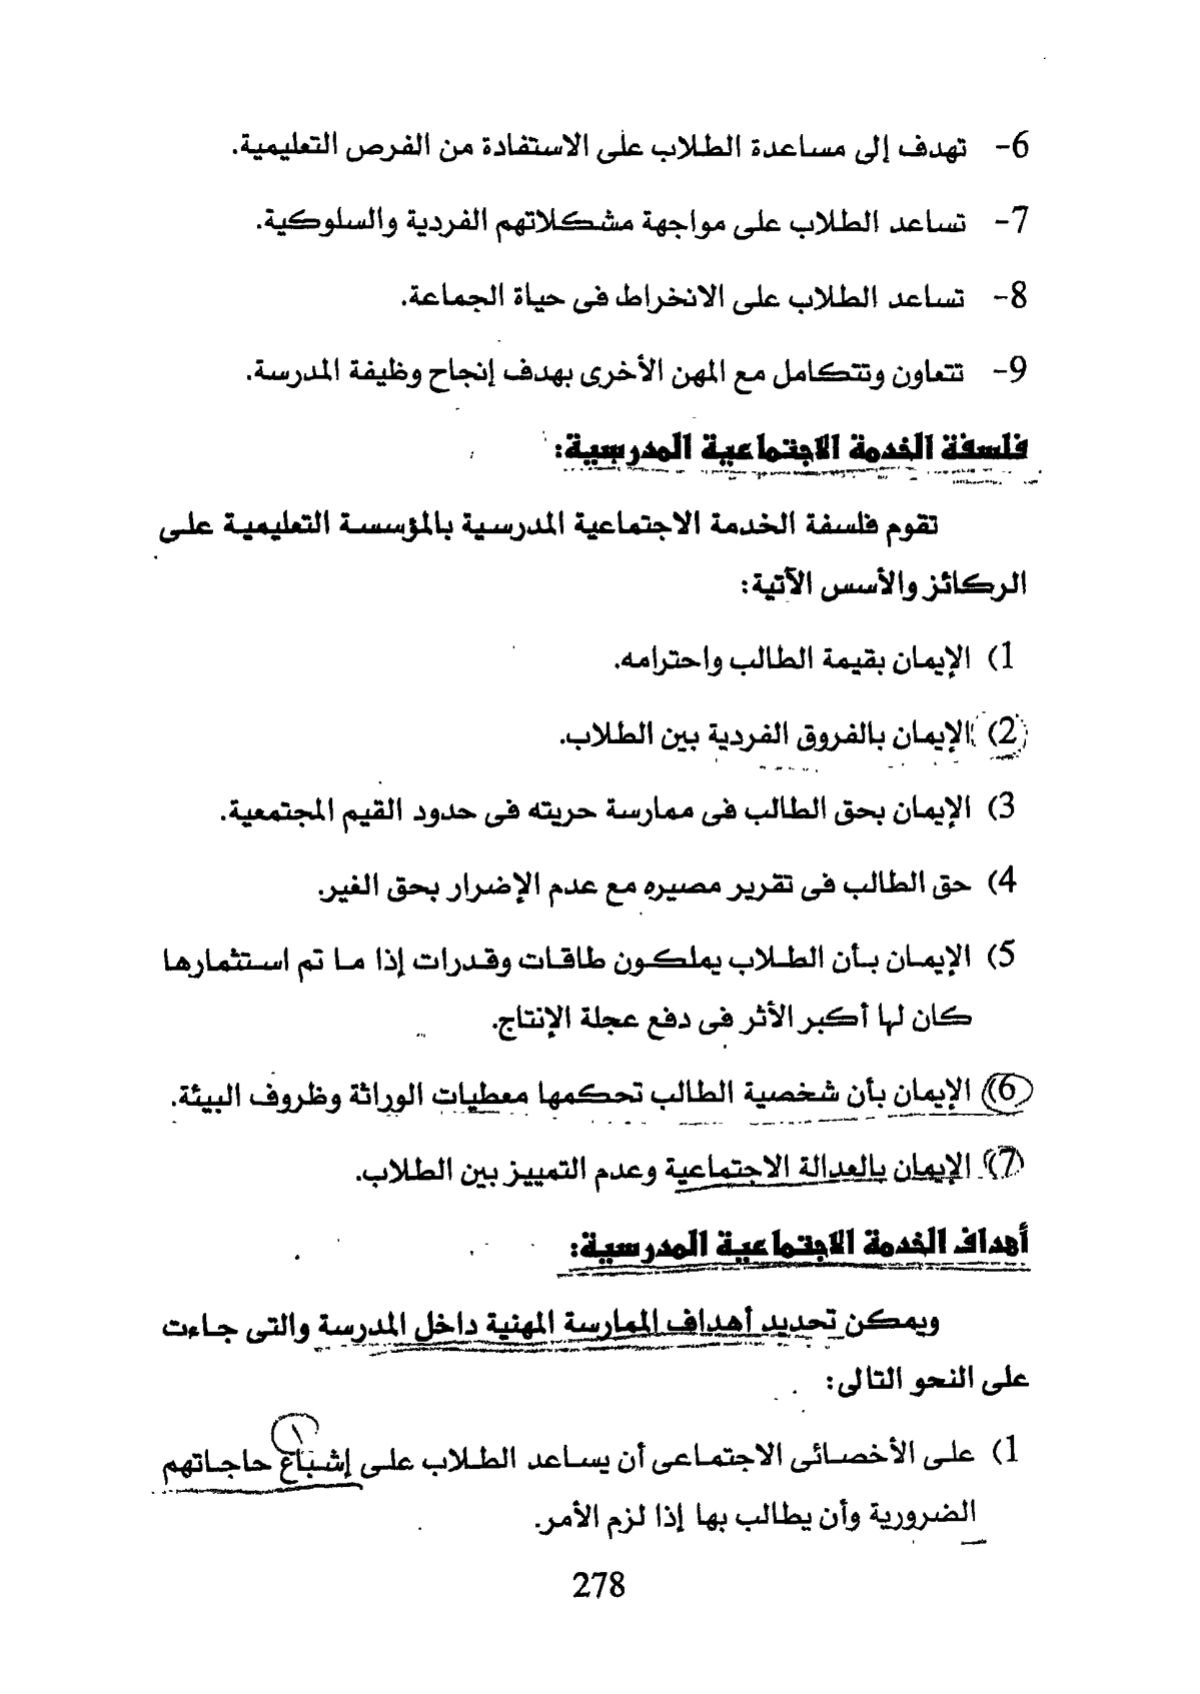 6- تهدف إلى مساعدة الطلاب على الاستفادة من الفرص التعليمية.
7- تساعد الطلاب على مواجهة مشكلاتهم الفردية والسلوكية.
8- تساعد الطلاب على الانخراط فى حياة الجماعة.
9- تتعاون وتتكامل مع المهن الأخرى بهدف إنجاح وظيفة المدرسة.
فلسفة الخدمة الاجتماعية المدرسية:
تقوم فلسفة الخدمة الاجتماعية المدرسية بالمؤسسة التعليمية على
الركائز والأسس الآتية:
1) الإيمان بقيمة الطالب واحترامه.
2) الإيمان بالفروق الفردية بين الطلاب.
3) الإيمان بحق الطالب فى ممارسة حريته فى حدود القيم المجتمعية.
4) حق الطالب فى تقرير مصيره مع عدم الإضرار بحق الغير.
5) الإيمان بأن الطلاب يملكون طاقات وقدرات إذا ما تم استثمارها
كان لها أكبر الأثر فى دفع عجلة الإنتاج.
6) الإيمان بأن شخصية الطالب تحكمها معطيات الوراثة وظروف البيئة.
7) الإيمان بالعدالة الاجتماعية وعدم التمييز بين الطلاب.
أهداف الخدمة الاجتماعية المدرسية:
ويمكن تحديد أهداف الممارسة المهنية داخل المدرسة والتى جاءت
على النحو التالى:
١
1) على الأخصائى الاجتماعى أن يساعد الطلاب على إشباع حاجاتهم
الضرورية وأن يطالب بها إذا لزم الأمر.
278